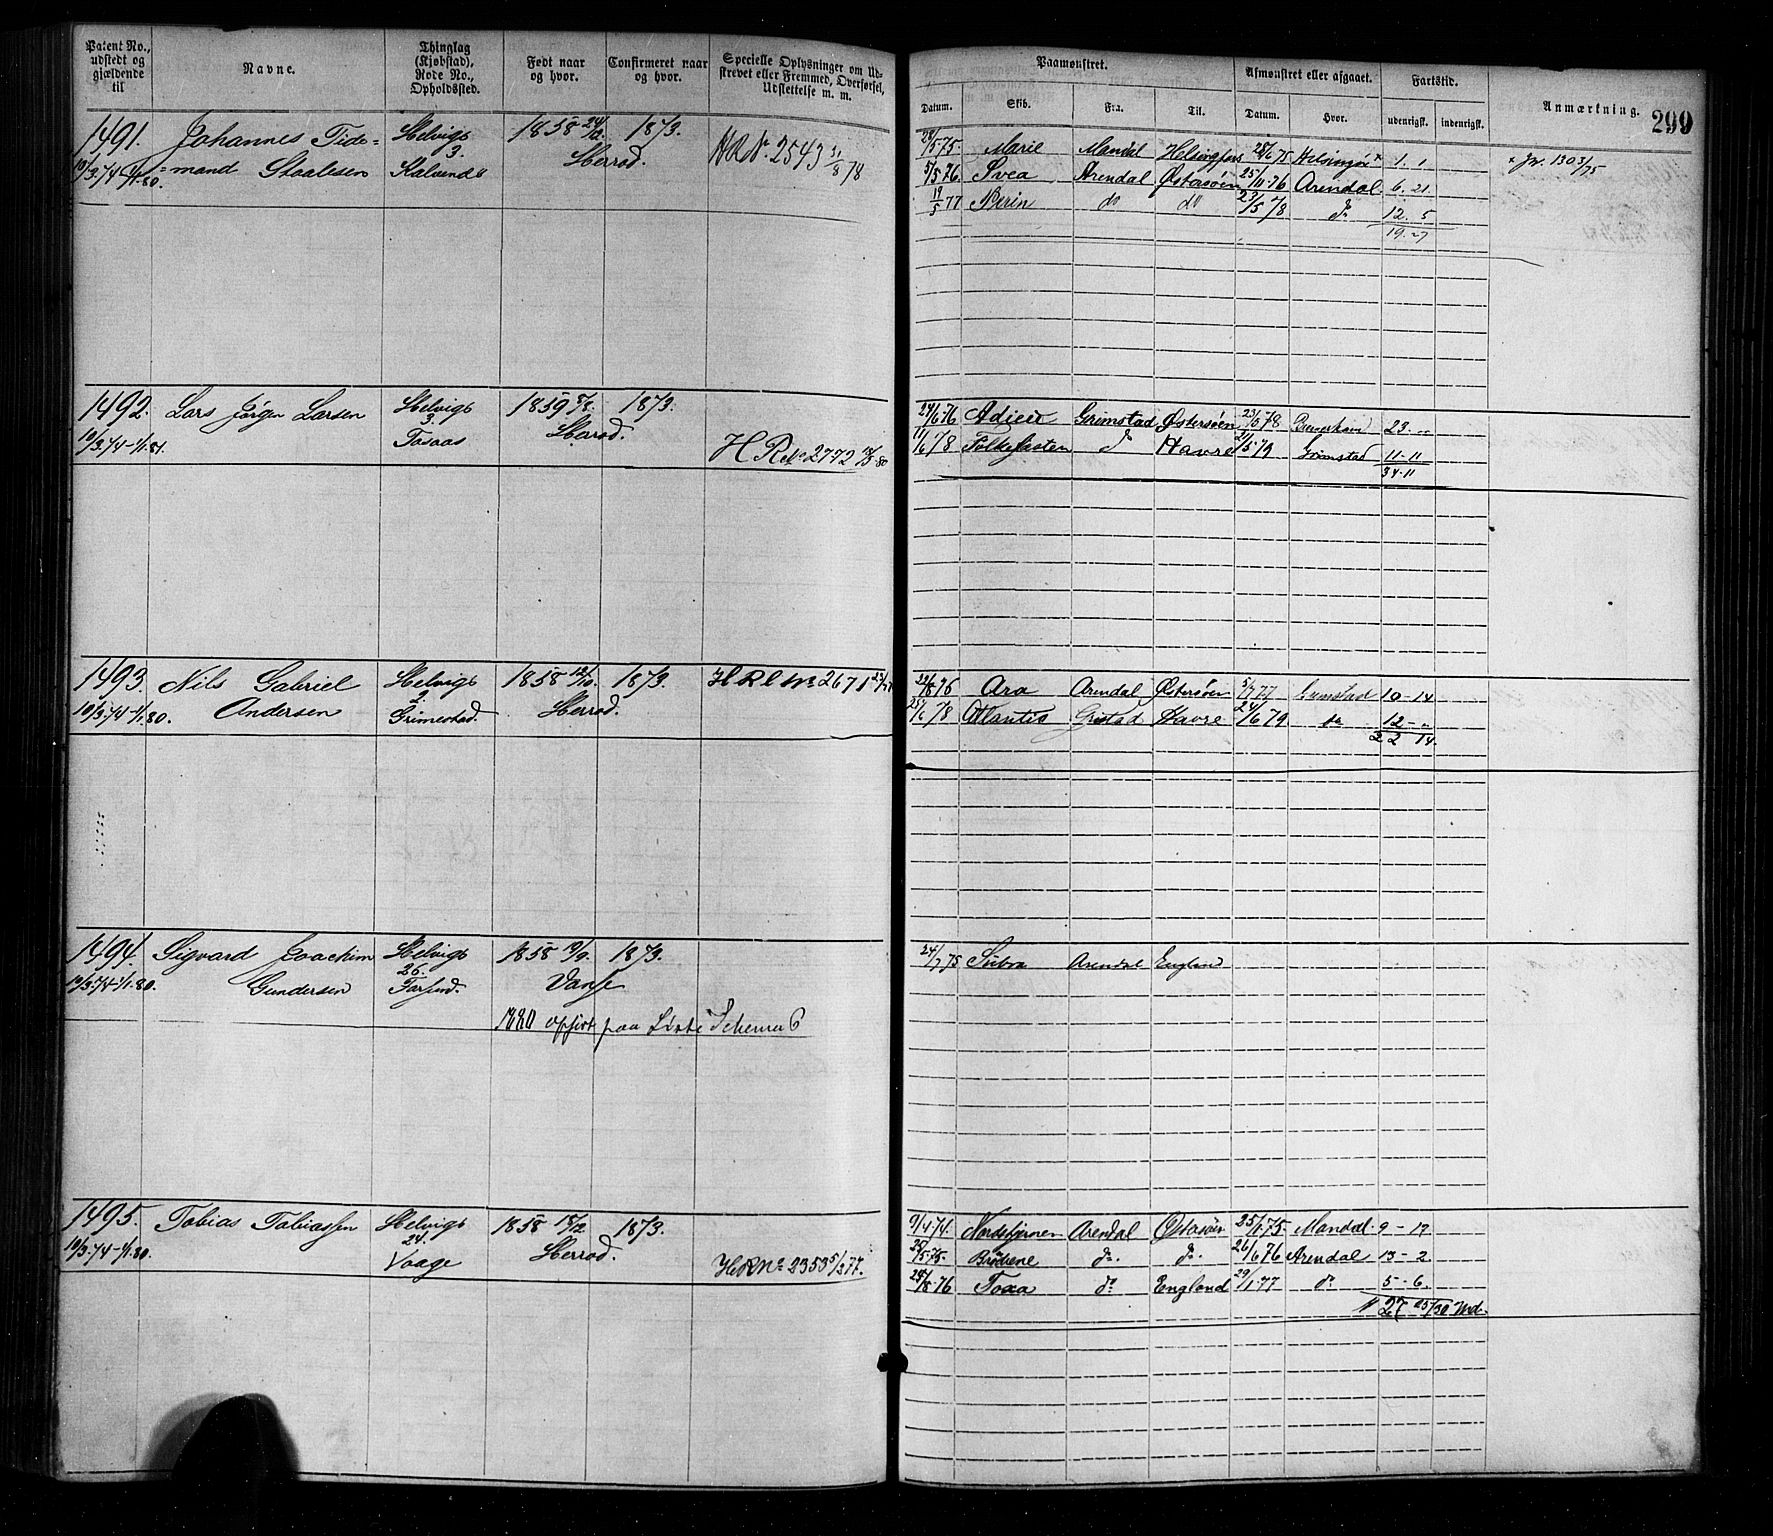 Patent No., udstedt og gjældende til
Navne.
Thinglag (Kjøbstad), Rode No., Opholdssted.
Født naar og hvor.
Confirmeret naar og hvor.
Specielle Oplysninger om Udstrevet eller Fremmed, Overførsel, Udslettelse m. m.
Paamønstret.
Afmønstret eller afgaaet.
Fartstid.
Anmærkning.
299
Datum. Skib. Fra. Til. Datum. Hvor. udenrigsk. indenrigsk.
1491. Johannes Tide= Helvigs 1858 24/12. 1873.
10/3.74-1/1.80. =mand Staalesen 3. Herrod. HR Nº. 2543 31/8 78
Marie Mandal Helsingfors 28/6 75 Helsingør × 1. 1 × Jr. 1303/75
5/5 76 Svea Arendal Østersøen 25/11.76 Arendal 6. 21
19/5 77 dº dº 23/5 78 dº 12. 5
19. 27
1492. Lars Jørgen Larsen Helvigs 1859 1873.
10/3.74-1/1.81. 3. Herrod.
Tosaas H R Nº 2772
24/6 76 Grimstad Østersøen 23/6 78 23. "
11/6 78 dº Havre Grimstad 11-11
34-11
1493. Nils Gabriel Helvigs 1858 12/10. 1873. HRL Nº 2671
10/3.74-1/1.80. Andersen 2. Grimestad. Herrod.
22/8 76 Ara Arendal Østersøen 5/7 77 Grimstad 10-14
25/6 78 Atlantis Grstad Havre 24/6 79 dº 12-"
22 14.
1494. Sigvard Joachim Helvigs 1858 19/9. 1873.
10/3.74-1/1.80. Gundersen 26. Farsund. Vanse
1880 opført paa Liste Schema 6
24/7 75 Arendal England
1495. Tobias Tobiassen Helvigs 1858 18/12 1873.
10/3.74-1/1.80. 24. Herrod.
Vaage HRNº 2353 5/2 77.
9/4 74. Nordstjernen Arendal Østersøen 25/1 75. Mandal. 9-17
25/5 75. Brødrene dº. dº. 26/6 76 Arendal 13-2
25/8 76 Toxa dº. England 29/1 77 dº 5-6.
27 25/30 Md.